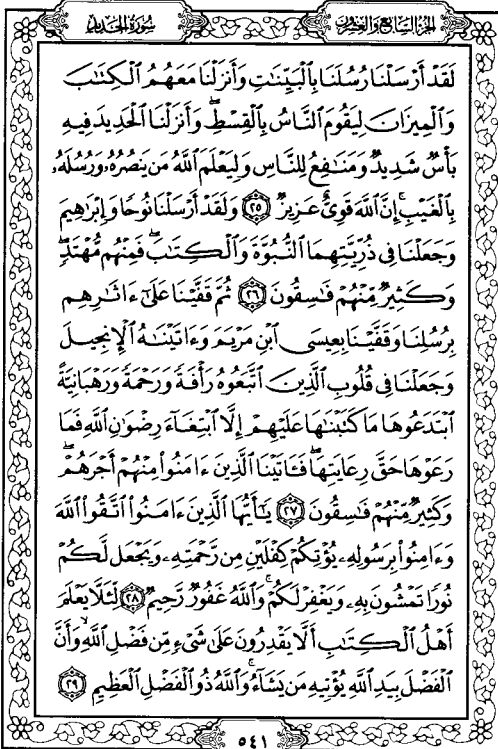 سورة الحديد
الجزء السابع والعشرون
لَقَدْ أَرْسَلْنَا رُسُلَنَا بِالْبَيِّنَٰتِ وَأَنزَلْنَا مَعَهُمُ الْكِتَٰبَ
وَالْمِيزَانَ لِيَقُومَ النَّاسُ بِالْقِسْطِ ۖ وَأَنزَلْنَا الْحَدِيدَ فِيهِ
بَأْسٌ شَدِيدٌ وَمَنَٰفِعُ لِلنَّاسِ وَلِيَعْلَمَ اللَّهُ مَن يَنصُرُهُۥ وَرُسُلَهُۥ
بِالْغَيْبِ ۚ إِنَّ اللَّهَ قَوِىٌّ عَزِيزٌ ٢٥ وَلَقَدْ أَرْسَلْنَا نُوحًا وَإِبْرَٰهِيمَ
وَجَعَلْنَا فِى ذُرِّيَّتِهِمَا النُّبُوَّةَ وَالْكِتَٰبَ ۖ فَمِنْهُم مُّهْتَدٍ ۖ
وَكَثِيرٌ مِّنْهُمْ فَٰسِقُونَ ٢٦ ثُمَّ قَفَّيْنَا عَلَىٰٓ ءَاثَٰرِهِم
بِرُسُلِنَا وَقَفَّيْنَا بِعِيسَى ابْنِ مَرْيَمَ وَءَاتَيْنَٰهُ الْإِنجِيلَ
وَجَعَلْنَا فِى قُلُوبِ الَّذِينَ اتَّبَعُوهُ رَأْفَةً وَرَحْمَةً وَرَهْبَانِيَّةً
ابْتَدَعُوهَا مَا كَتَبْنَٰهَا عَلَيْهِمْ إِلَّا ابْتِغَآءَ رِضْوَٰنِ اللَّهِ فَمَا
رَعَوْهَا حَقَّ رِعَايَتِهَا ۖ فَـَٔاتَيْنَا الَّذِينَ ءَامَنُوا مِنْهُمْ أَجْرَهُمْ ۖ
وَكَثِيرٌ مِّنْهُمْ فَٰسِقُونَ ٢٧ يَٰٓأَيُّهَا الَّذِينَ ءَامَنُوا اتَّقُوا اللَّهَ
وَءَامِنُوا بِرَسُولِهِۦ يُؤْتِكُمْ كِفْلَيْنِ مِن رَّحْمَتِهِۦ وَيَجْعَل لَّكُمْ
نُورًا تَمْشُونَ بِهِۦ وَيَغْفِرْ لَكُمْ ۚ وَاللَّهُ غَفُورٌ رَّحِيمٌ ٢٨ لِّئَلَّا يَعْلَمَ
أَهْلُ الْكِتَٰبِ أَلَّا يَقْدِرُونَ عَلَىٰ شَىْءٍ مِّن فَضْلِ اللَّهِ ۙ وَأَنَّ
الْفَضْلَ بِيَدِ اللَّهِ يُؤْتِيهِ مَن يَشَآءُ ۚ وَاللَّهُ ذُو الْفَضْلِ الْعَظِيمِ ٢٩
٥٤١